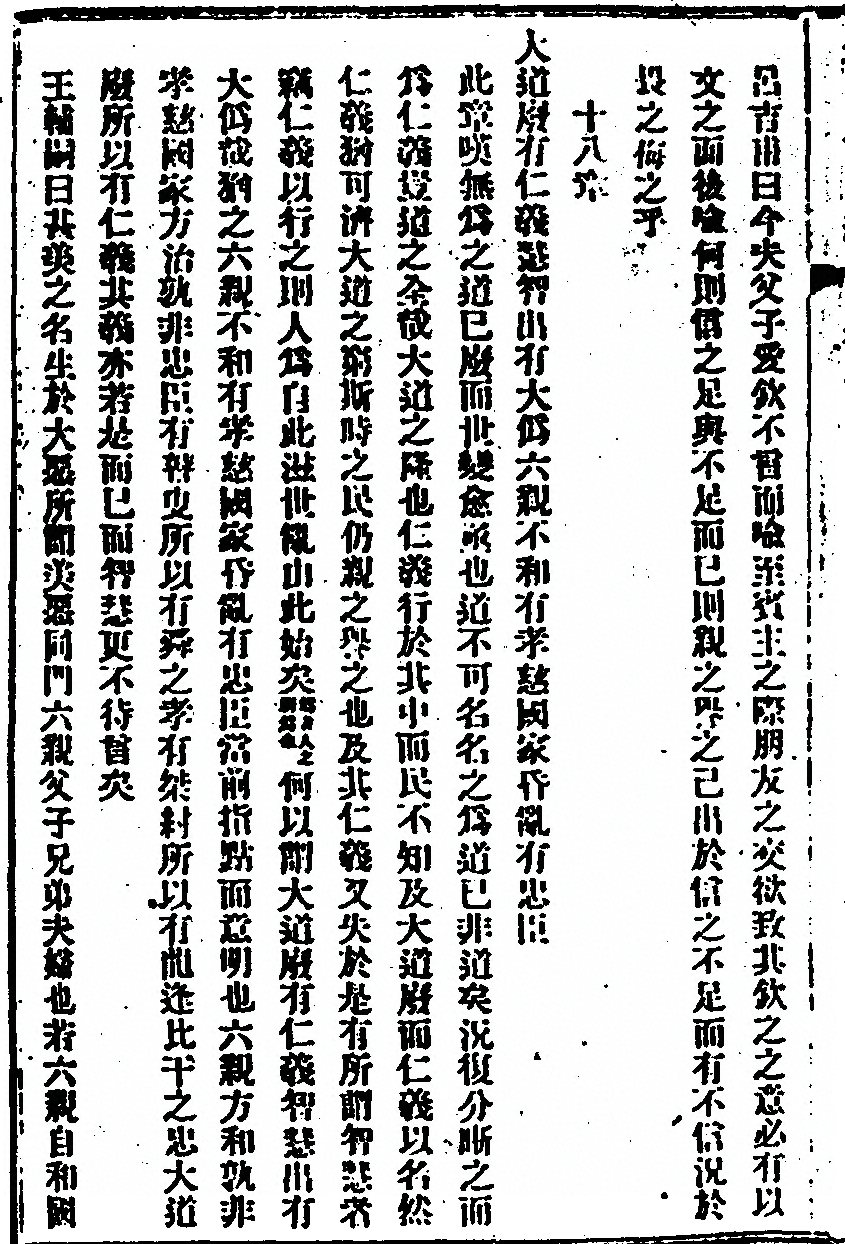 呂吉甫曰今夫父子愛欽不言而喻至賓主之際朋友之交欲致其欽之之意必有以
文之而後喻何則信之足與不足而已則親之譽之已出於信之不足而有不信況於
畏之侮之乎
十八章
大道廢有仁義慧智出有大偽六親不和有孝慈國家昏亂有忠臣
此章嘆無為之道已廢而世變愈而也道不可名名之為道已非道矣況復分晰之而
為仁義豈道之全哉大道之隆也仁義行於其中而民不知及大道廢而仁義以名然
仁義猶可濟大道之窮斯時之民仍親之譽之也及其仁義又失於是有所謂智慧者
竊仁義以行之則人為自此滋世亂由此始矣為者人之所為也何以謂大道廢有仁義智慧出有
大偽哉猶之六親不和有孝慈國家昏亂有忠臣當前指點而意明也六親方和孰非
孝慈國家方治孰非忠臣有瞽叟所以有舜之孝有桀紂所以有龍逄比干之忠大道
廢所以有仁義其義亦若是而已而智慧更不待言矣
王輔嗣曰甚美之名生於大惡所謂美惡同門六親父子兄弟夫婦也若六親自和國